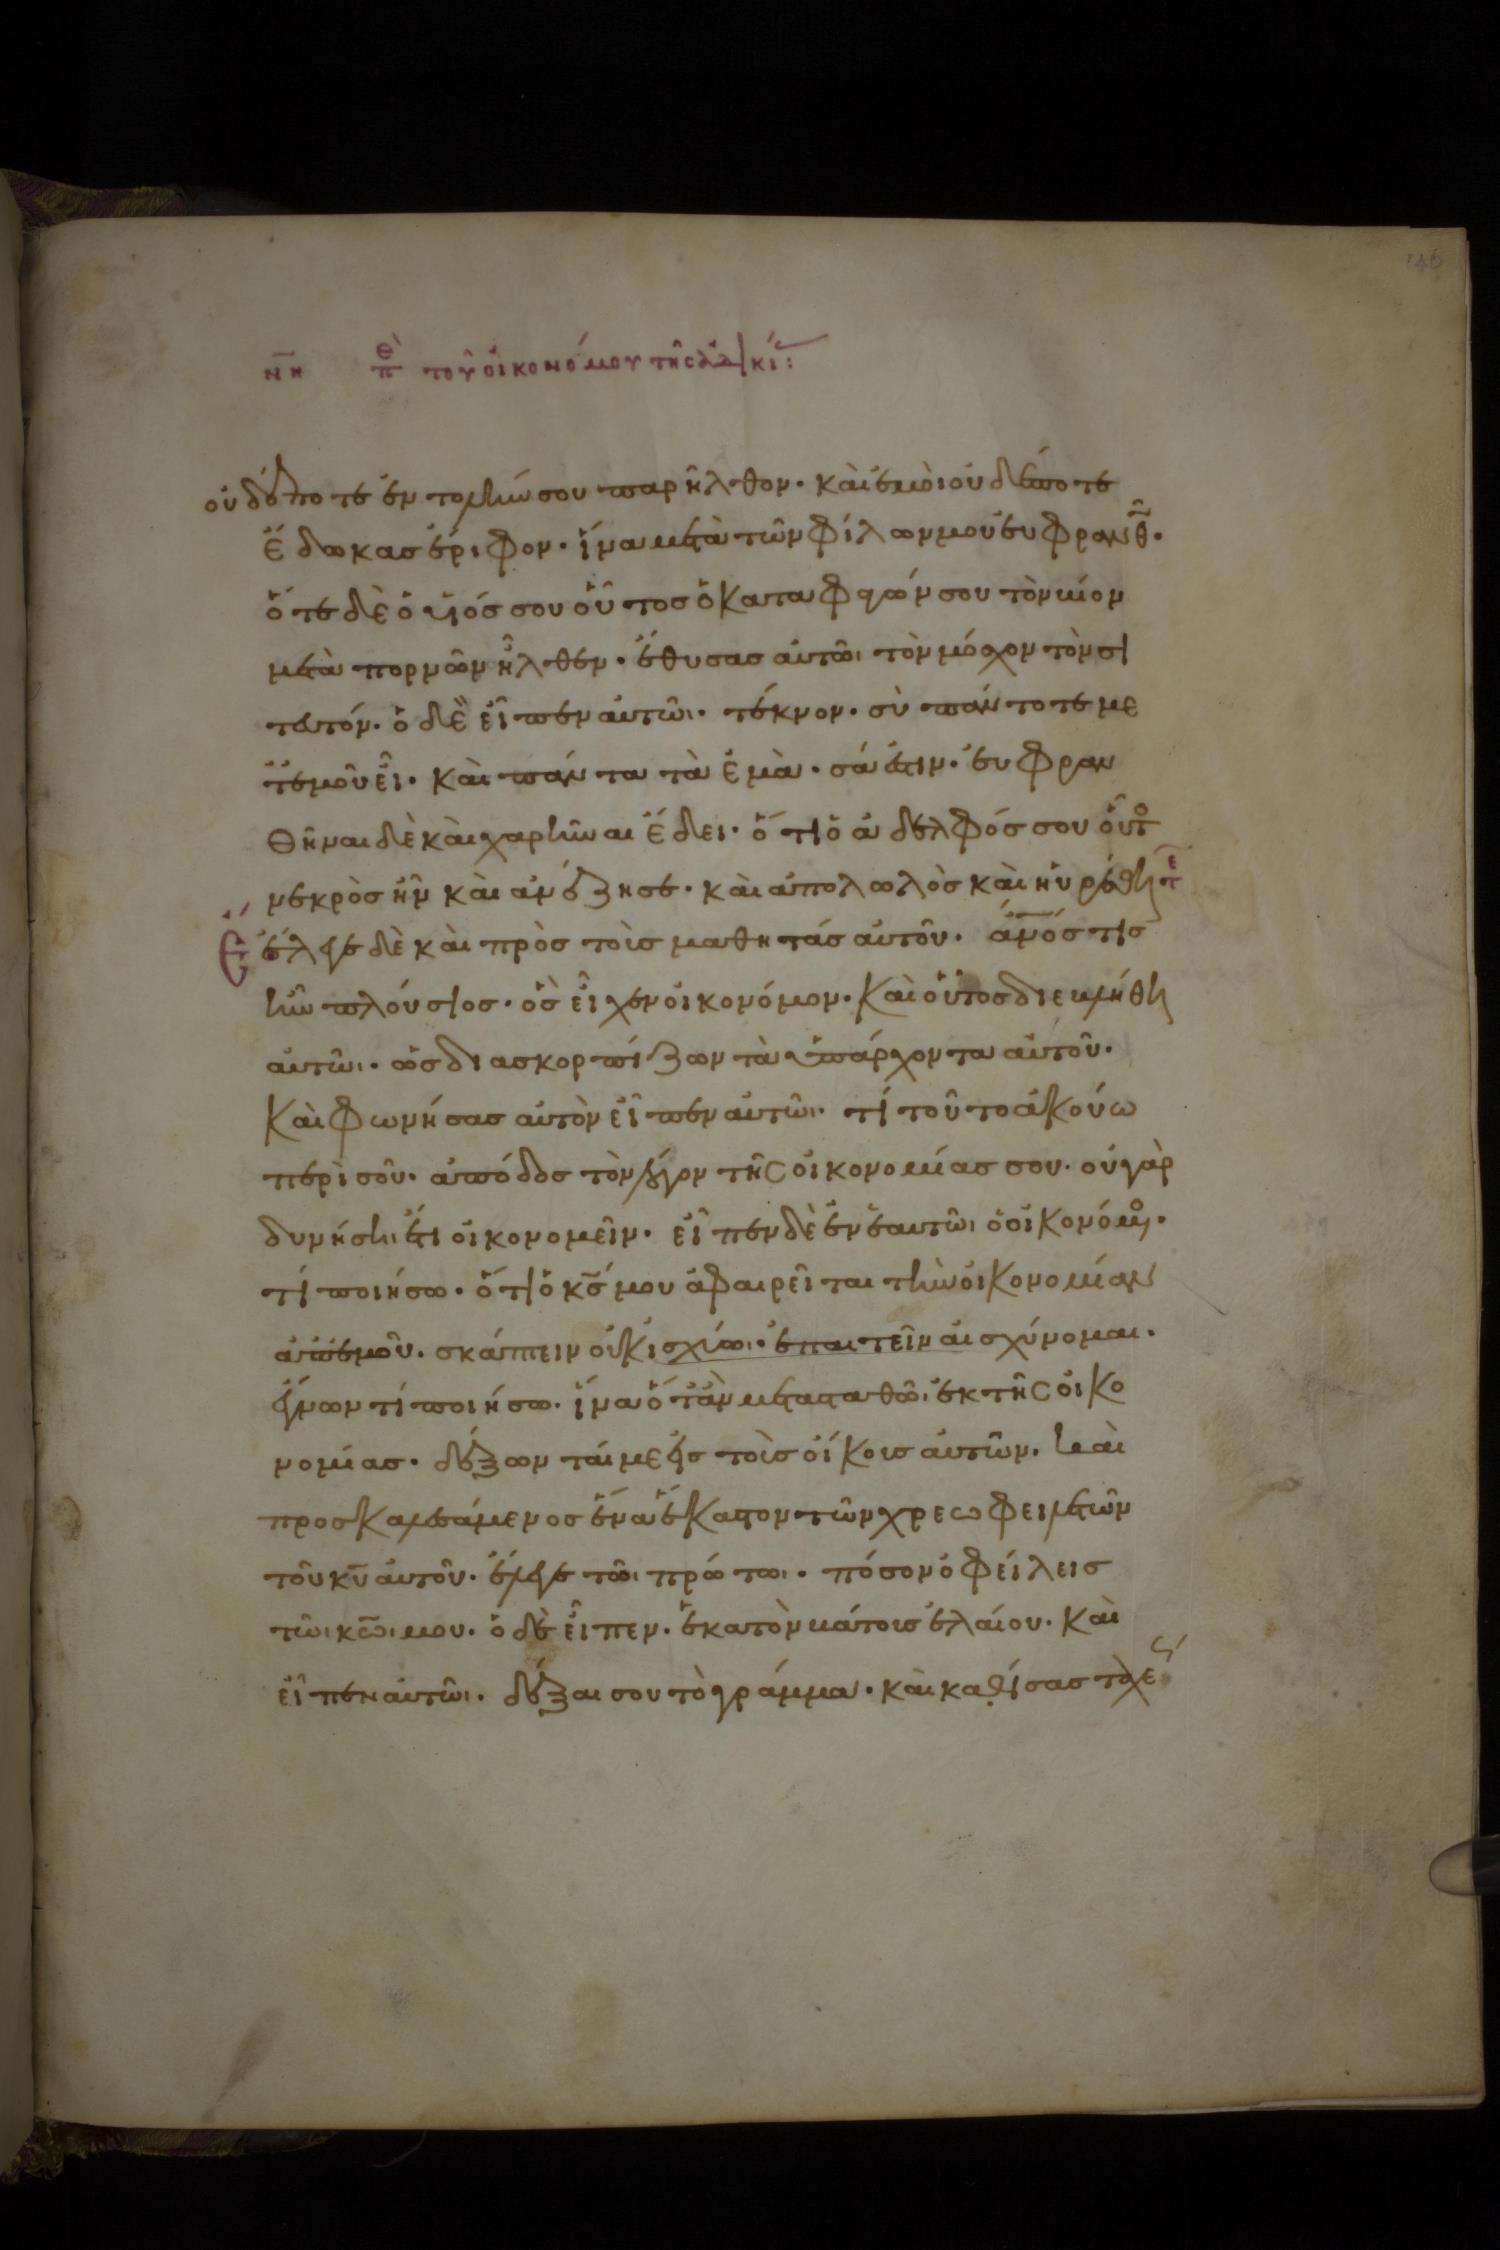 146
νη πε τοῦ οἰκονόμου τῆς ἀδικί:
οὐδέποτε ἐντολήν σου παρῆλθον· καὶ ἐμοὶ οὐδέποτε
ἔδωκας ἔριφον· ἵνα μετὰ τῶν φίλων μου εὐφρανθῶ·
ὅτε δὲ ὁ υἱός σου οὗτος ὁ καταφαγών σου τὸν βίον
μετὰ πορνῶν ἦλθεν· ἔθυσας αὐτῶι τὸν μόσχον τὸν σι
τευτόν· ὁ δὲ εἶπεν αὐτῶι· τέκνον· σὺ πάντοτε με
τ ἐμοῦ εἶ· καὶ πάντα τὰ ἐμὰ· σά ἐστιν· εὐφραν
θῆναι δὲ καὶ χαρῆναι ἔδει· ὅτι ὁ ἀδελφός σου οὗτο
νεκρὸς ἦν καὶ ἀνέζησε· καὶ ἀπολωλὸς καὶ ηὑρέθη· τε
Ἔλεγε δὲ καὶ πρὸς τοὺς μαθητάς αὐτοῦ· ἄνός τις
ἦν πλούσιος· ὃς εἶχεν οἰκονόμον· Καὶ οὗτος διεβλήθη
αὐτῶι· ὡς διασκορπίζων τὰ ὑπάρχοντα αὐτοῦ·
Καὶ φωνήσας αὐτὸν εἶπεν αὐτῶι· τί τοῦτο ἀκούω
περὶ σοῦ· ἀπόδος τὸν λόγον τῆς οἰκονομίας σου· οὐ γὰρ
δυνήσηι ἔτι οἰκονομεῖν· εἶπεν δὲ ἐν ἑαυτῶι ὁ οἰκονόμο·
τί ποιήσω· ὅτι ὁ κς μου ἀφαιρεῖται τὴν οἰκονομίαν
ἀπ ἐμοῦ· σκάπτειν οὐκ ἰσχύω· ἐπαιτεῖν αἰσχύνομαι·
ἔγνων τί ποιήσω· ἵνα ὅταν μετασταθῶ ἐκ τῆς οἰκο
νομίας· δέξωνταί με εἰς τοὺς οἴκους αὐτῶν· καὶ
προσκαλεσάμενος ἕνα ἕκαστον τῶν χρεωφειλετῶν
τοῦ κυ αὐτοῦ· ἔλεγε τῶι πρώτωι· πόσον ὀφείλεις
τῶι κωι μου· ὁ δὲ εἶπεν· ἑκατὸν βάτους ἐλαίου· Καὶ
εἶπεν αὐτῶι· δέξαι σου τὸ γράμμα· καὶ καθίσας ταχέ